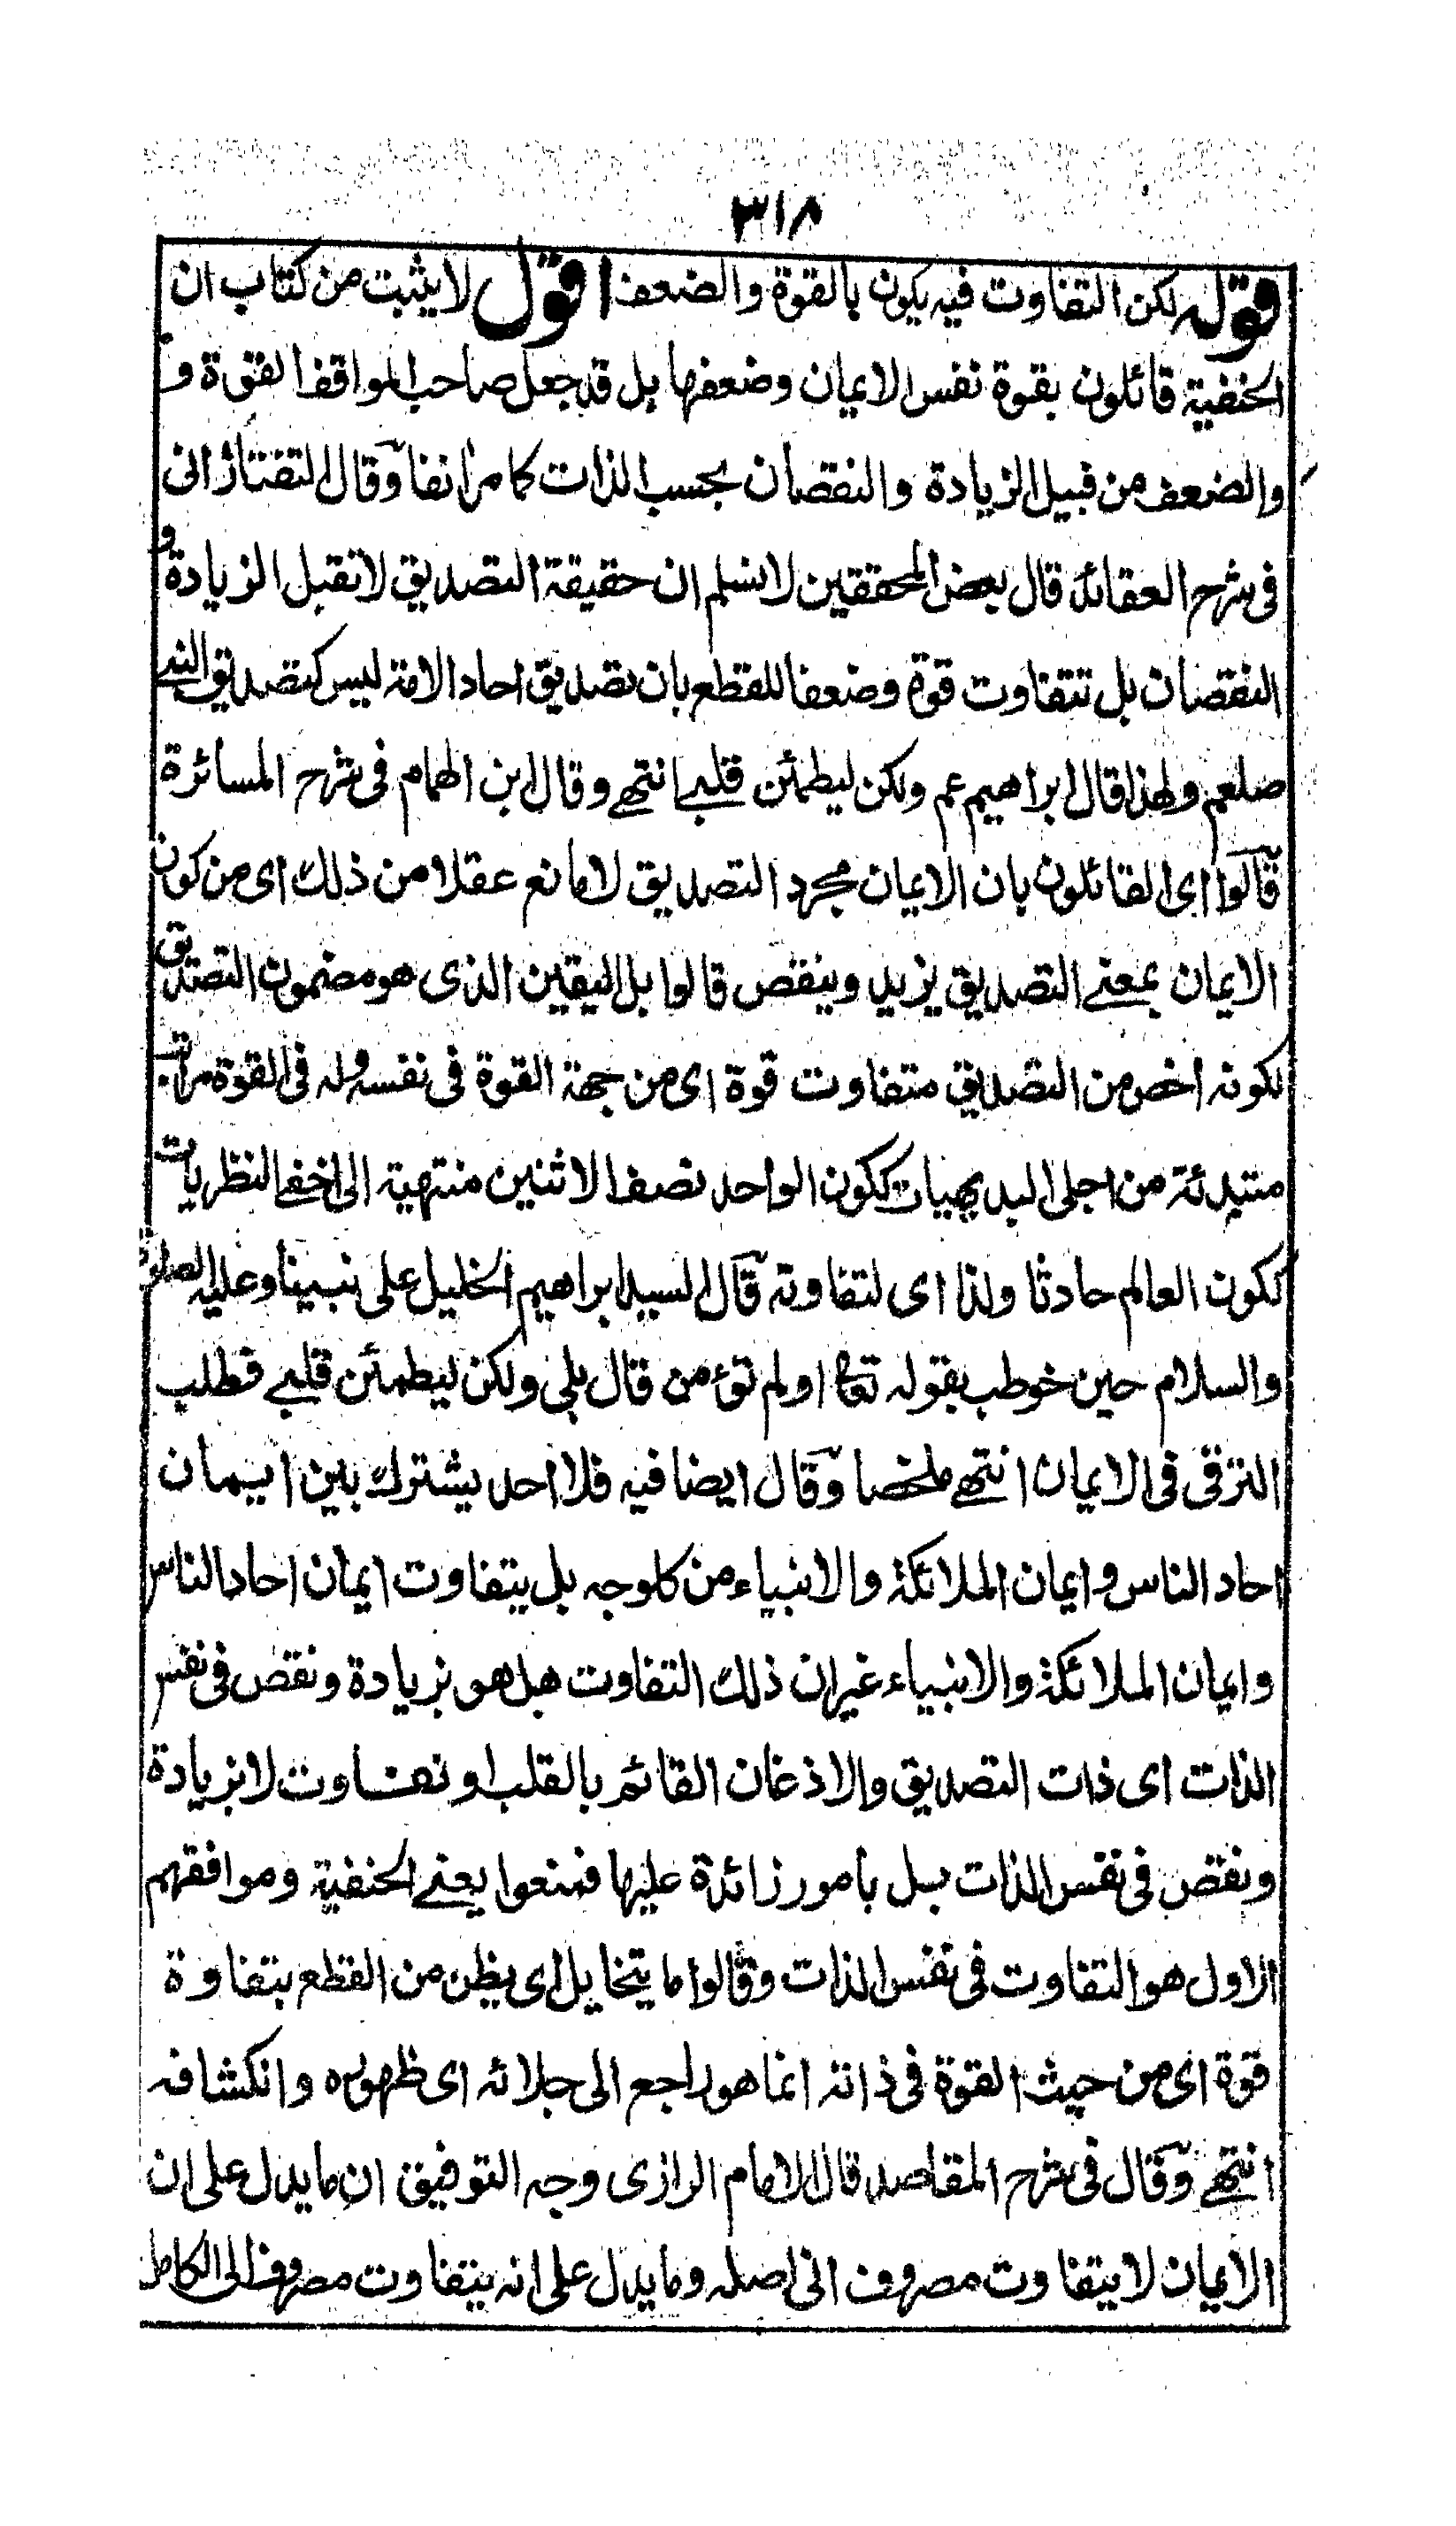 ٣١٨
قوله لكن التفاوت فيه يكون بالقوة والضعف اقول لا يثبت من كتاب ان
الحنفية قائلون بقوة نفس الايمان وضعفها بل قد جعل صاحب المواقف القوة و
والضعف من قبيل الزيادة والنقصان بحسب الذات كما مر انفا وقال التفتازانى
فى شرح العقائد قال بعض المحققين لا نسلم ان حقيقة التصديق لا تقبل الزيادة و
النقصان بل تتفاوت قوة وضعفا للقطع بان تصديق احاد الامة ليس كتصديق النبى
صلعم ولهذا قال ابراهيم عم ولكن ليطمئن قلبے انتهے وقال ابن الهمام فى شرح المسائرة
قالوا اى القائلون بان الايمان مجرد التصديق لا مانع عقلا من ذلك اى من كون
الايمان بمعنے التصديق يزيد وينقص قالوا بل اليقين الذى هو مضمون التصديق
لكونه اخص من التصديق متفاوت قوة اى من جهة القوة فى نفسه وله فى القوة مراتب
مبتدئة من اجلى البديهيات ككون الواحد نصف الاثنين منتهية الى اخفے النظريات
ككون العالم حادثا ولذا اى لتفاوته قال السيد ابراهيم الخليل على نبينا وعليه الصلوة
والسلام حين خوطب بقوله تعا اولم تؤمن قال بلى ولكن ليطمئن قلبے فطلب
الترقى فى الايمان انتهے ملخصا وقال ايضا فيه فلا احد يشترك بين ايمان
احاد الناس وايمان الملائكة والانبياء من كلوجه بل يتفاوت ايمان احاد الناس
وايمان الملائكة والانبياء غير ان ذلك التفاوت هل هو بزيادة ونقص فى نفس
الذات اى ذات التصديق والاذعان القائم بالقلب او تفاوت لا بزيادة
ونقص فى نفس الذات بل بامور زائدة عليها فمنعوا يعنے الحنفية وموافقهم
الاول هو التفاوت فى نفس الذات وقالوا ما يتخايل اى يظن من القطع بتفاوة
قوة اى من حيث القوة فى ذاته انما هو راجع الى جلائه اى ظهوره وانكشافه
انتهے وقال فى شرح المقاصد قال الامام الرازى وجه التوفيق ان ما يدل على ان
الايمان لا يتفاوت مصروف الى اصله وما يدل على انه يتفاوت مصروف الى الكامل